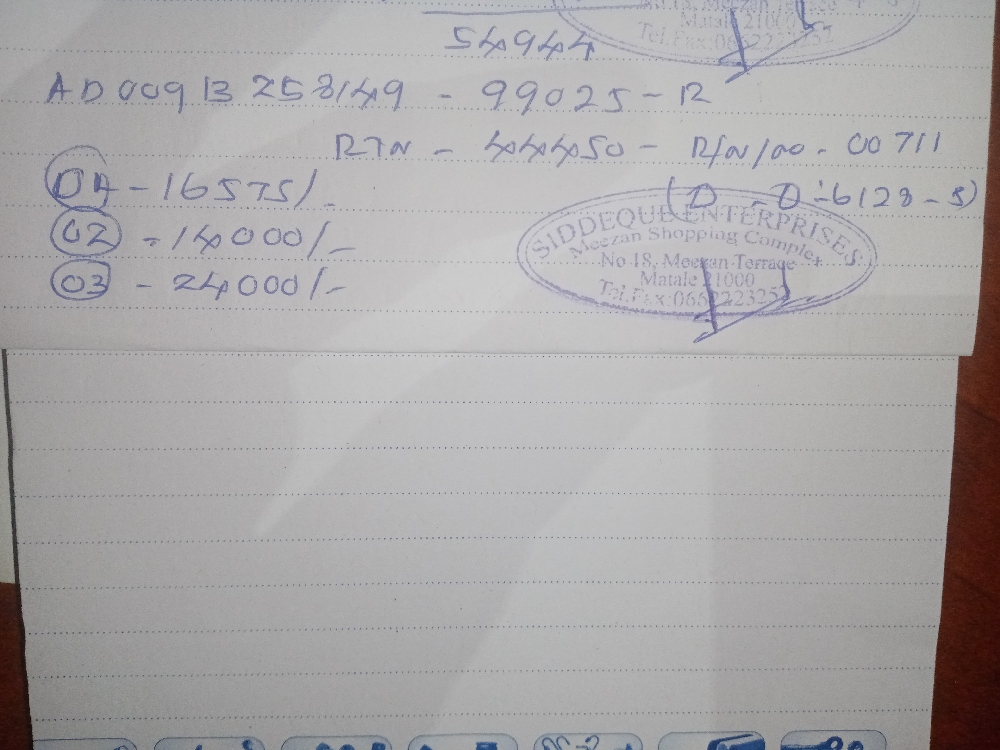 Matale 21000
Tel.Fax:0662223252
54944
AD009B258149 - 99025 - R
RTN - 44450 - R/N/no. 00711
01 - 16575/-
(D - D:6128-5)
02 - 14000/-
03 - 24000/-
SIDDEQUE ENTERPRISES
Meezan Shopping Complex
No 18, Meezan Terrace
Matale 21000
Tel.Fax:0662223252